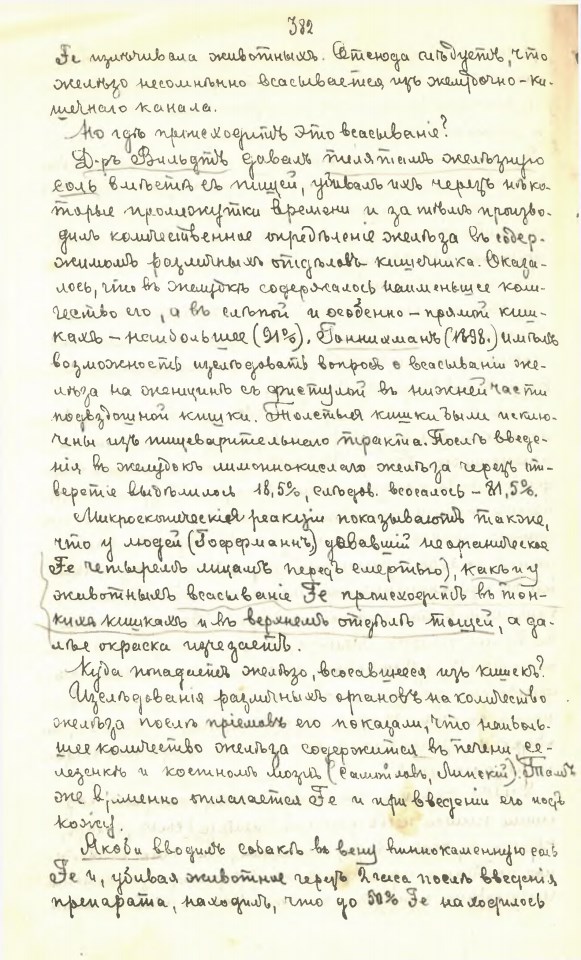 382
Fe излѣчивала животныхъ. Отсюда слѣдуетъ, что
желѣзо несомнѣнно всасывается изъ желудочно-ки-
шечнаго канала.
Но гдѣ происходитъ это всасываніе?
Д-ръ Вильдтъ давалъ телятамъ желѣзную
соль вмѣстѣ съ пищей, убивалъ ихъ черезъ нѣко-
торые промежутки времени и за тѣмъ произво-
дилъ количественное опредѣленіе желѣза въ содер-
жимомъ различныхъ отдѣловъ кишечника. Оказа-
лось, что въ желудкѣ содержалось наименьшее коли-
чество его, а въ слѣпой и особенно – прямой киш-
кахъ – наибольшее (91%). Гоннихманъ (1898.) имѣлъ
возможность изслѣдовать вопросъ о всасываніи же-
лѣза на женщинѣ съ фистулой въ нижней части
подвздошной кишки. Толстыя кишки были исклю-
чены изъ пищеварительнаго тракта. Послѣ введе-
нія въ желудокъ лимоннокислаго желѣза черезъ от-
верстіе выдѣлилось 18,5%, слѣдов. всосалось – 81,5%.
Микроскопическія реакціи показываютъ также,
что у людей (Гофферманнъ, дававшій неорганическое
Fe четыремъ лицамъ передъ смертью), какъ и у
животныхъ всасываніе Fe происходитъ въ тон-
кихъ кишкахъ и въ верхнемъ отдѣлѣ тощей, а да-
лѣе окраска изчезаетъ.
Куда попадаетъ желѣзо, всосавшееся изъ кишекъ?
Изслѣдованія различныхъ органовъ на количество
желѣза послѣ пріемовъ его показали, что наиболь-
шее количество желѣза содержится въ печени, се-
лезенкѣ и костномъ мозгѣ (Самойловъ, Липскій). Тамъ
же временно отлагается Fe и при введеніи его подъ
кожу.
Якоби вводилъ собакѣ въ вену виннокаменную соль
Fe и, убивая животное черезъ 2 часа послѣ введенія
препарата, находилъ, что до 50% Fe находилось